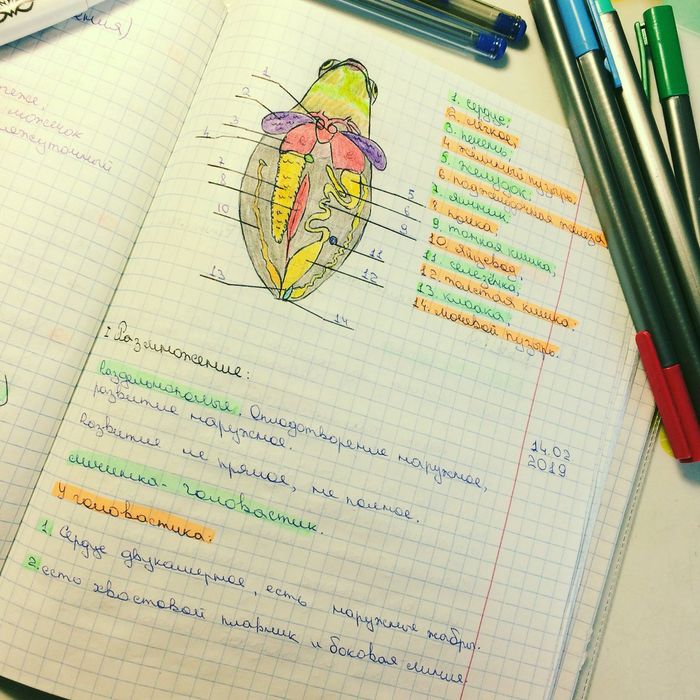 ения)
еже,
можечок
межуточный
1
2
3
4
7
8
10
13
5
6
9
11
12
14
1. сердце;
2. лёгкое,
3. печень,
4. жёлчный пузырь,
5. желудок;
6. поджелудочная железа
7. яичник
8. почка
9. тонкая кишка,
10. яйцевод,
11. селезёнка,
12. толстая кишка.
13. клоака,
14. мочевой пузырь.
I Размножение:
Раздельнополые. Оплодотворение наружное,
развитие наружное.
Развитие не прямое, не полное.
личинка - головастик.
У головастика:
1. Сердце двухкамерное, есть наружные жабры.
2. есть хвостовой плавник и боковая линия.
14.02
2019